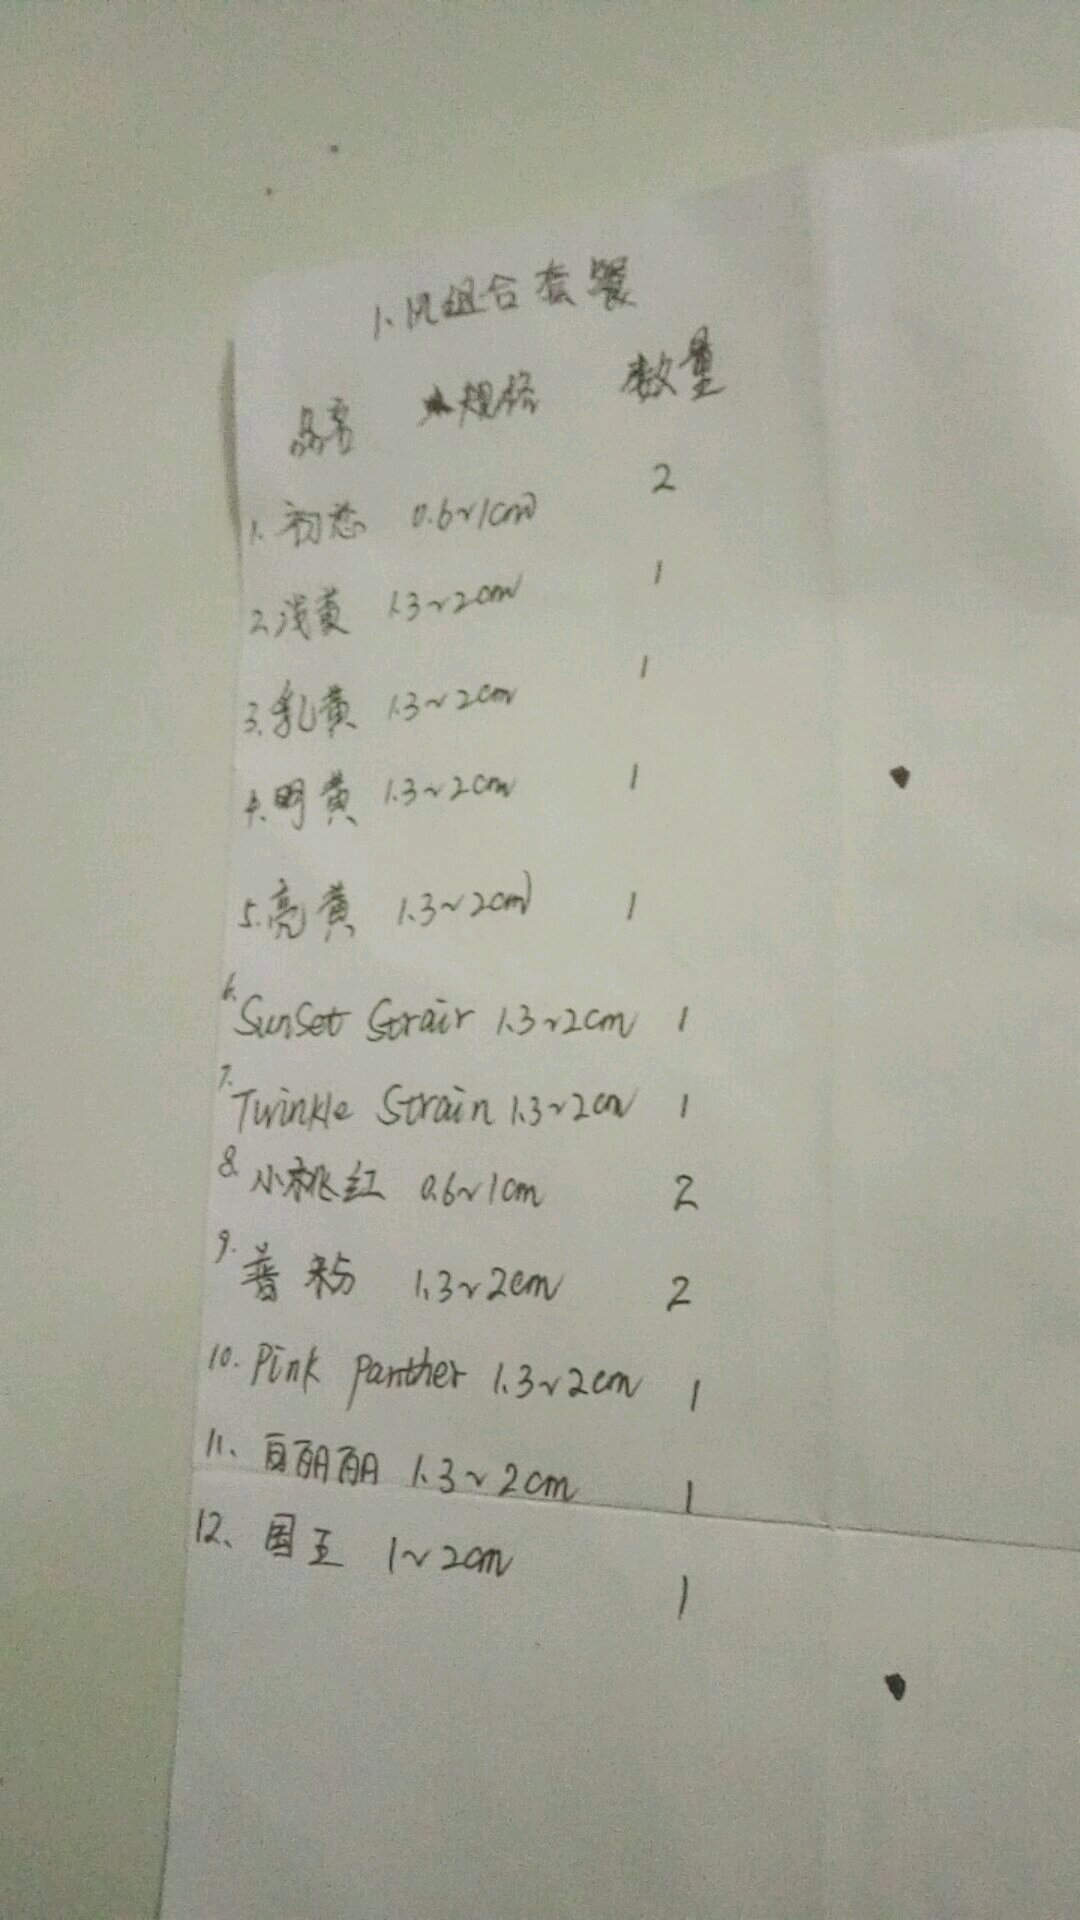 1. 风组合套餐
品名 规格 数量
1. 初恋 0.6~1cm 2
2. 浅黄 1.3~2cm 1
3. 乳黄 1.3~2cm 1
4. 明黄 1.3~2cm 1
5. 亮黄 1.3~2cm 1
6. SunSet Strair 1.3~2cm 1
7. Twinkle Strain 1.3~2cm 1
8. 小桃红 0.6~1cm 2
9. 普粉 1.3~2cm 2
10. Pink Panther 1.3~2cm 1
11. 百丽丽 1.3~2cm 1
12、国王 1~2cm 1